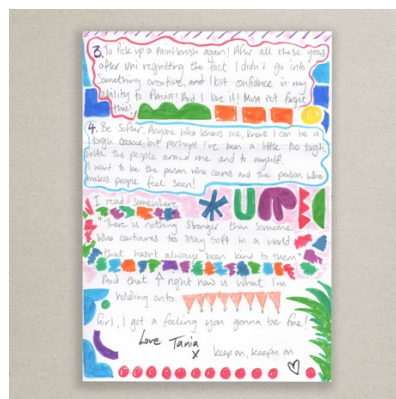 3. To Pick up a paintbrush again! After all these years
after uni regretting the fact I didn't go into
something creative, and lost confidence in my
ability to Paint! And I love it! Must not forget
this!
4. Be Softer. Anyone who knows me, knows I can be a
tough cookie, but perhaps I've been a little too tough
with the people around me and to myself.
I want to be the person who cares and the person who
makes people feel seen!
I read somewhere
"There is nothing stronger than someone
who continues to stay soft in a world
that hasn't always been kind to them"
And that right now is what I'm
holding onto.
Girl, I got a feeling you gonna be fine!
Love Tania
x
keep on, keepin on